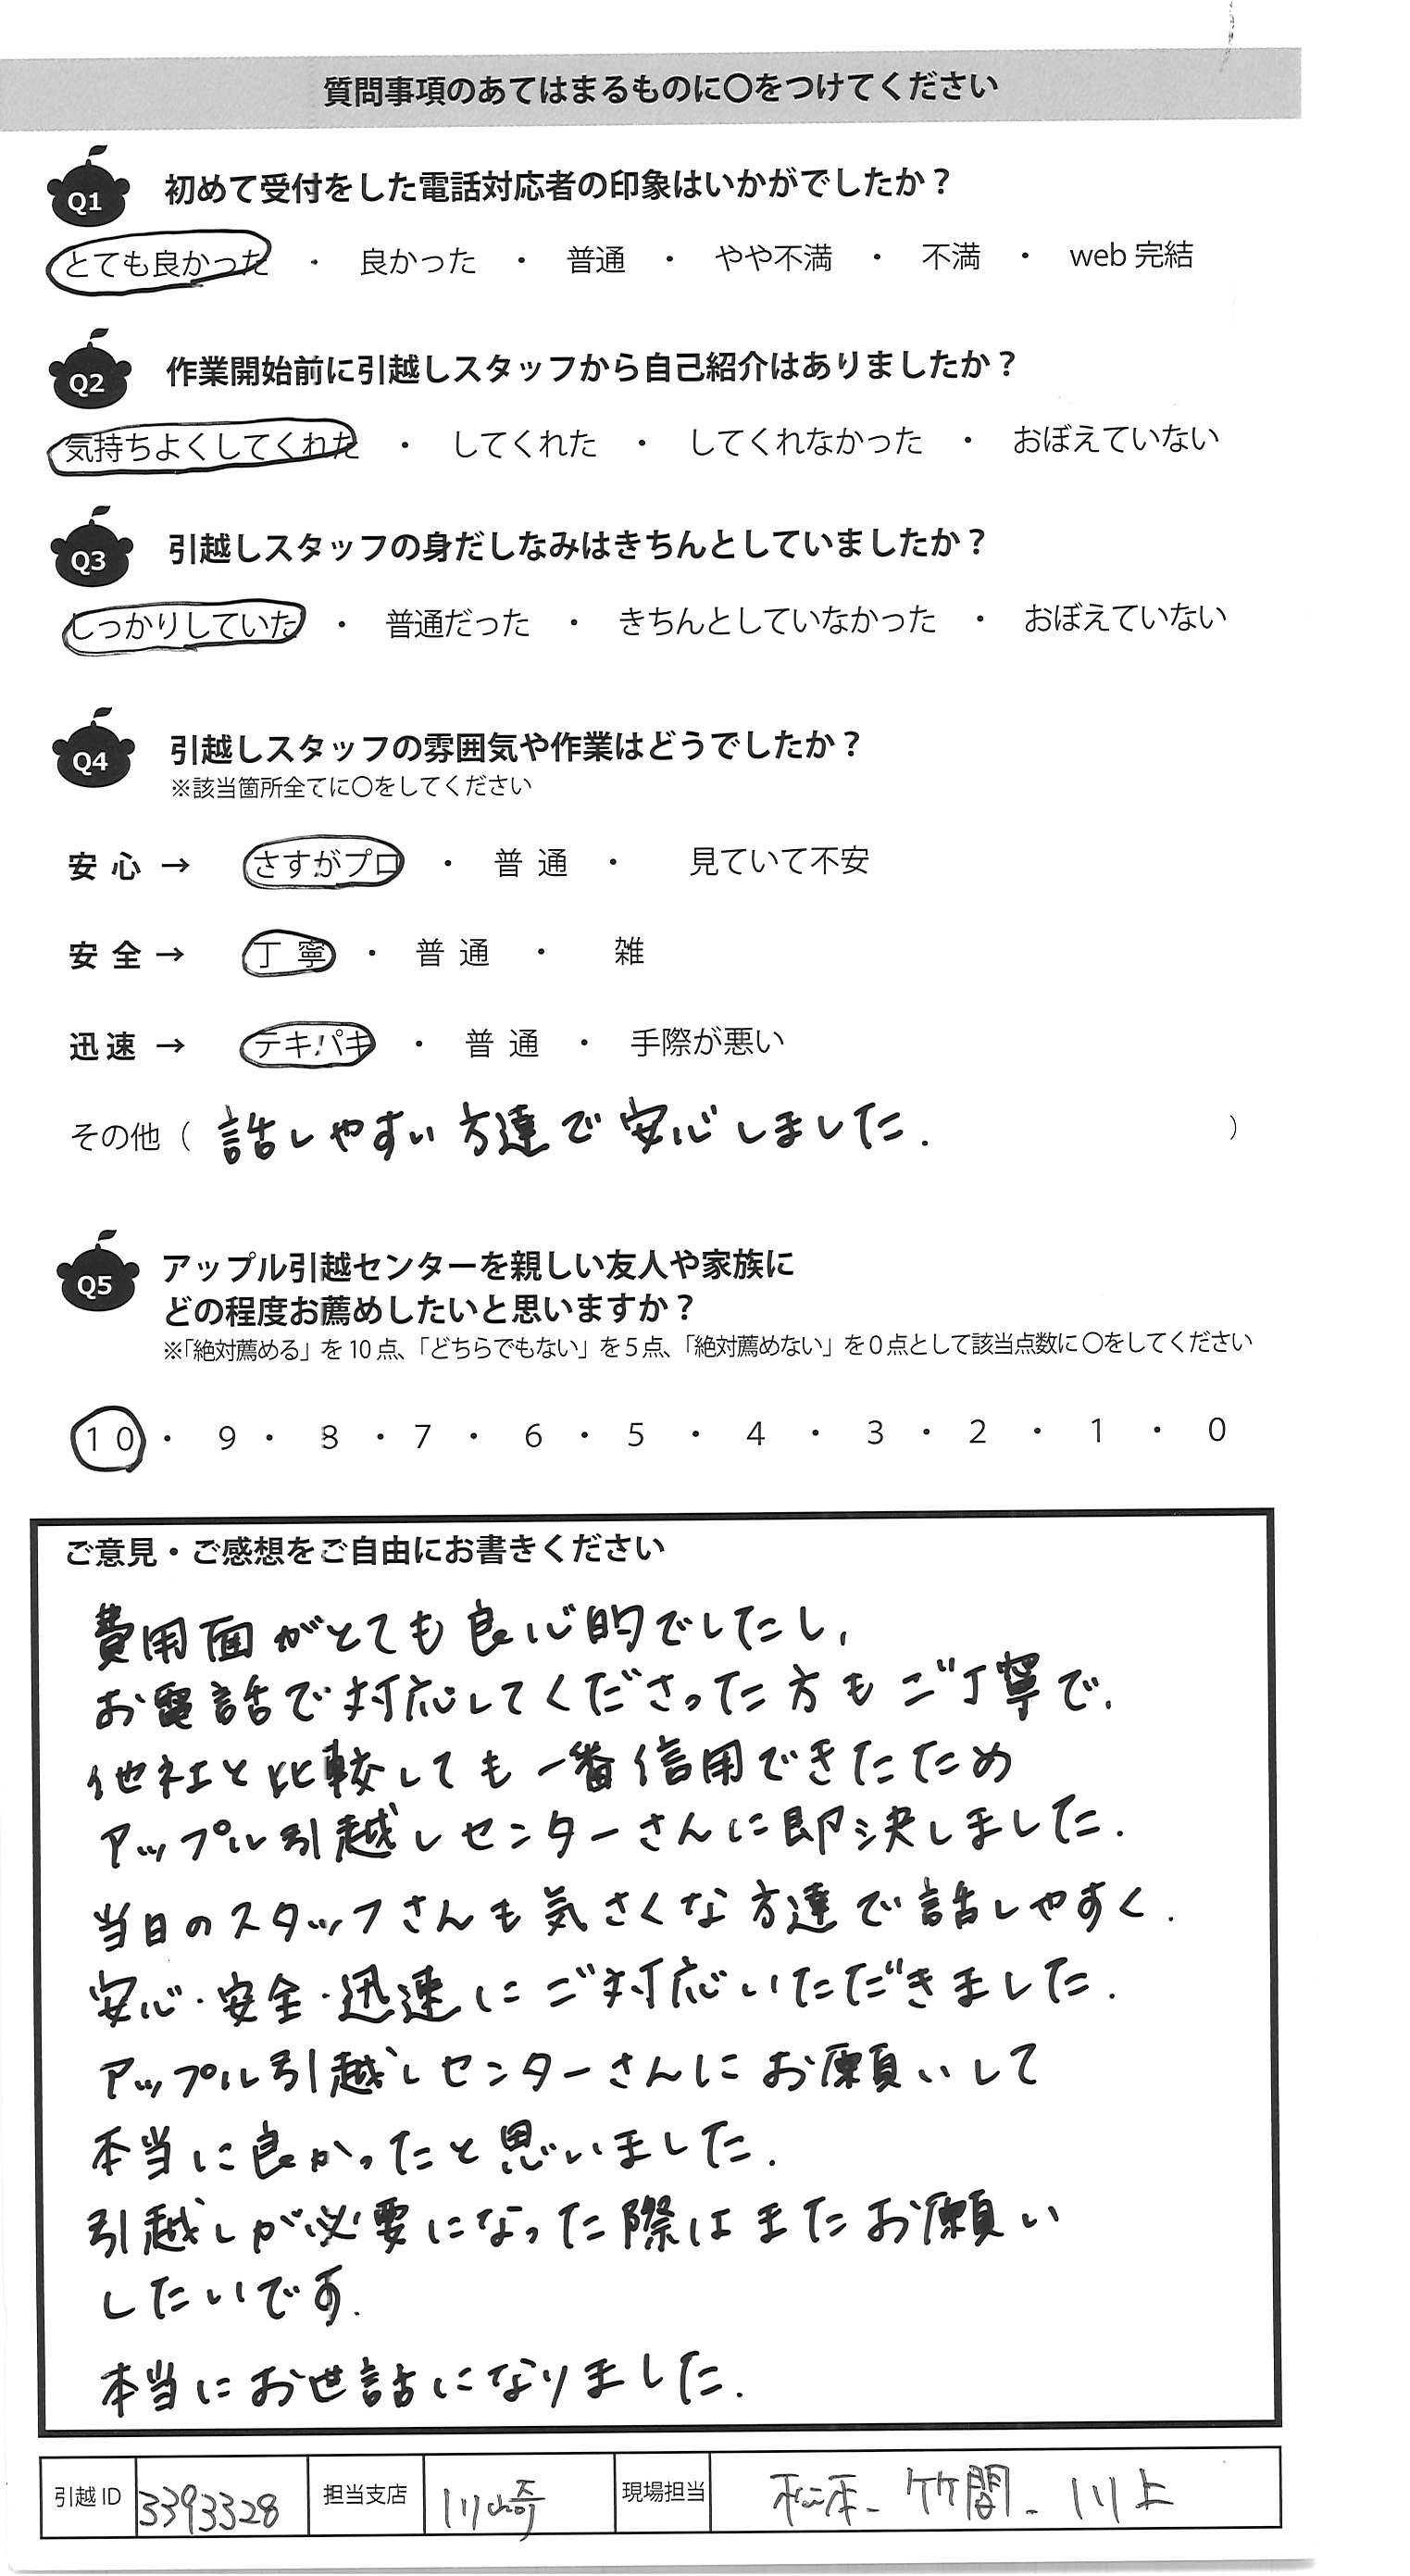 質問事項のあてはまるものに〇をつけてください
Q1 初めて受付をした電話対応者の印象はいかがでしたか？
とても良かった ・ 良かった ・ 普通 ・ やや不満 ・ 不満 ・ web 完結
Q2 作業開始前に引越しスタッフから自己紹介はありましたか？
気持ちよくしてくれた ・ してくれた ・ してくれなかった ・ おぼえていない
Q3 引越しスタッフの身だしなみはきちんとしていましたか？
しっかりしていた ・ 普通だった ・ きちんとしていなかった ・ おぼえていない
Q4 引越しスタッフの雰囲気や作業はどうでしたか？
※該当箇所全てに〇をしてください
安心 → さすがプロ ・ 普通 ・ 見ていて不安
安全 → 丁寧 ・ 普通 ・ 雑
迅速 → テキパキ ・ 普通 ・ 手際が悪い
その他（ 話しやすい方達で安心しました. ）
Q5 アップル引越センターを親しい友人や家族に
どの程度お薦めしたいと思いますか？
※「絶対薦める」を10点、「どちらでもない」を5点、「絶対薦めない」を0点として該当点数に〇をしてください
10 ・ 9 ・ 8 ・ 7 ・ 6 ・ 5 ・ 4 ・ 3 ・ 2 ・ 1 ・ 0
ご意見・ご感想をご自由にお書きください
費用面がとても良心的でしたし,
お電話で対応してくださった方もご丁寧で,
他社と比較しても一番信用できたため
アップル引越しセンターさんに即決しました.
当日のスタッフさんも気さくな方達で話しやすく.
安心・安全・迅速にご対応いただきました.
アップル引越しセンターさんにお願いして
本当に良かったと思いました.
引越しが必要になった際はまたお願い
したいです.
本当にお世話になりました.
引越ID 3393328 担当支店 川崎 現場担当 松本- 竹間- 川上